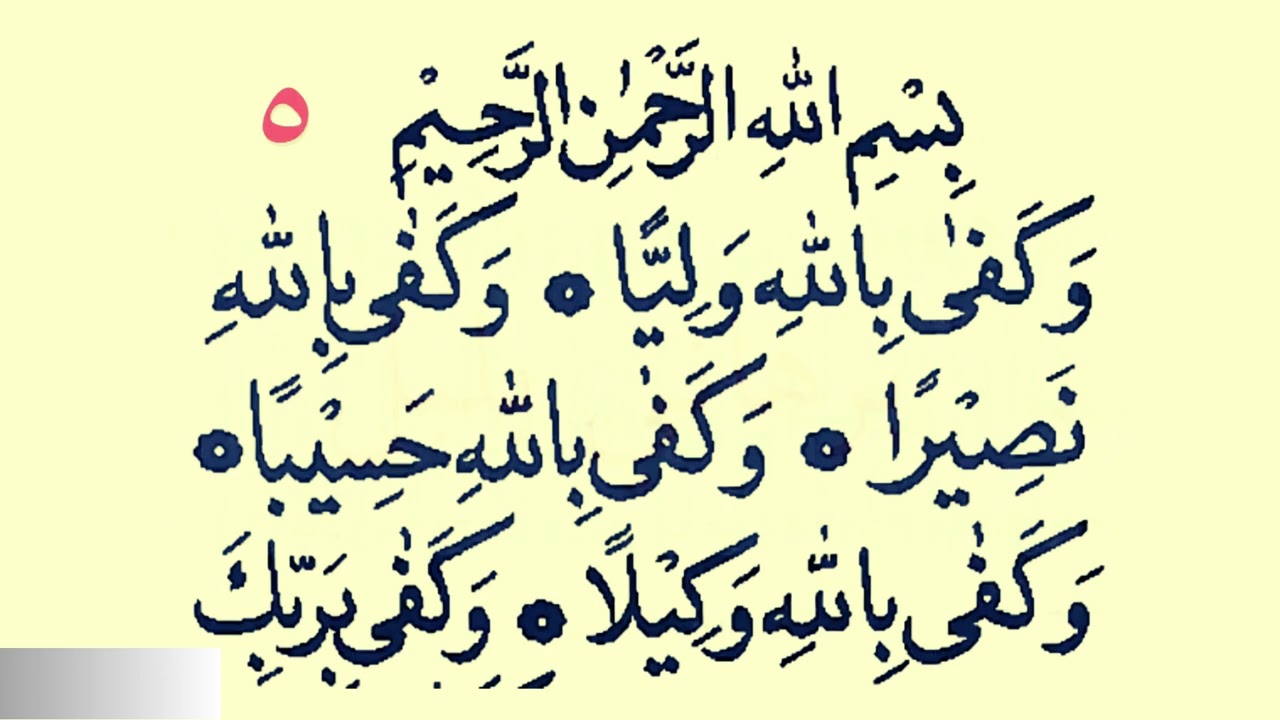 بِسْمِ اللهِ الرَّحْمٰنِ الرَّحِيْمِ ٥
وَكَفٰى بِاللهِ وَلِيًّا ۞ وَكَفٰى بِاللهِ
نَصِيْرًا ۞ وَكَفٰى بِاللهِ حَسِيْبًا ۞
وَكَفٰى بِاللهِ وَكِيْلًا ۞ وَكَفٰى بِرَبِّكَ